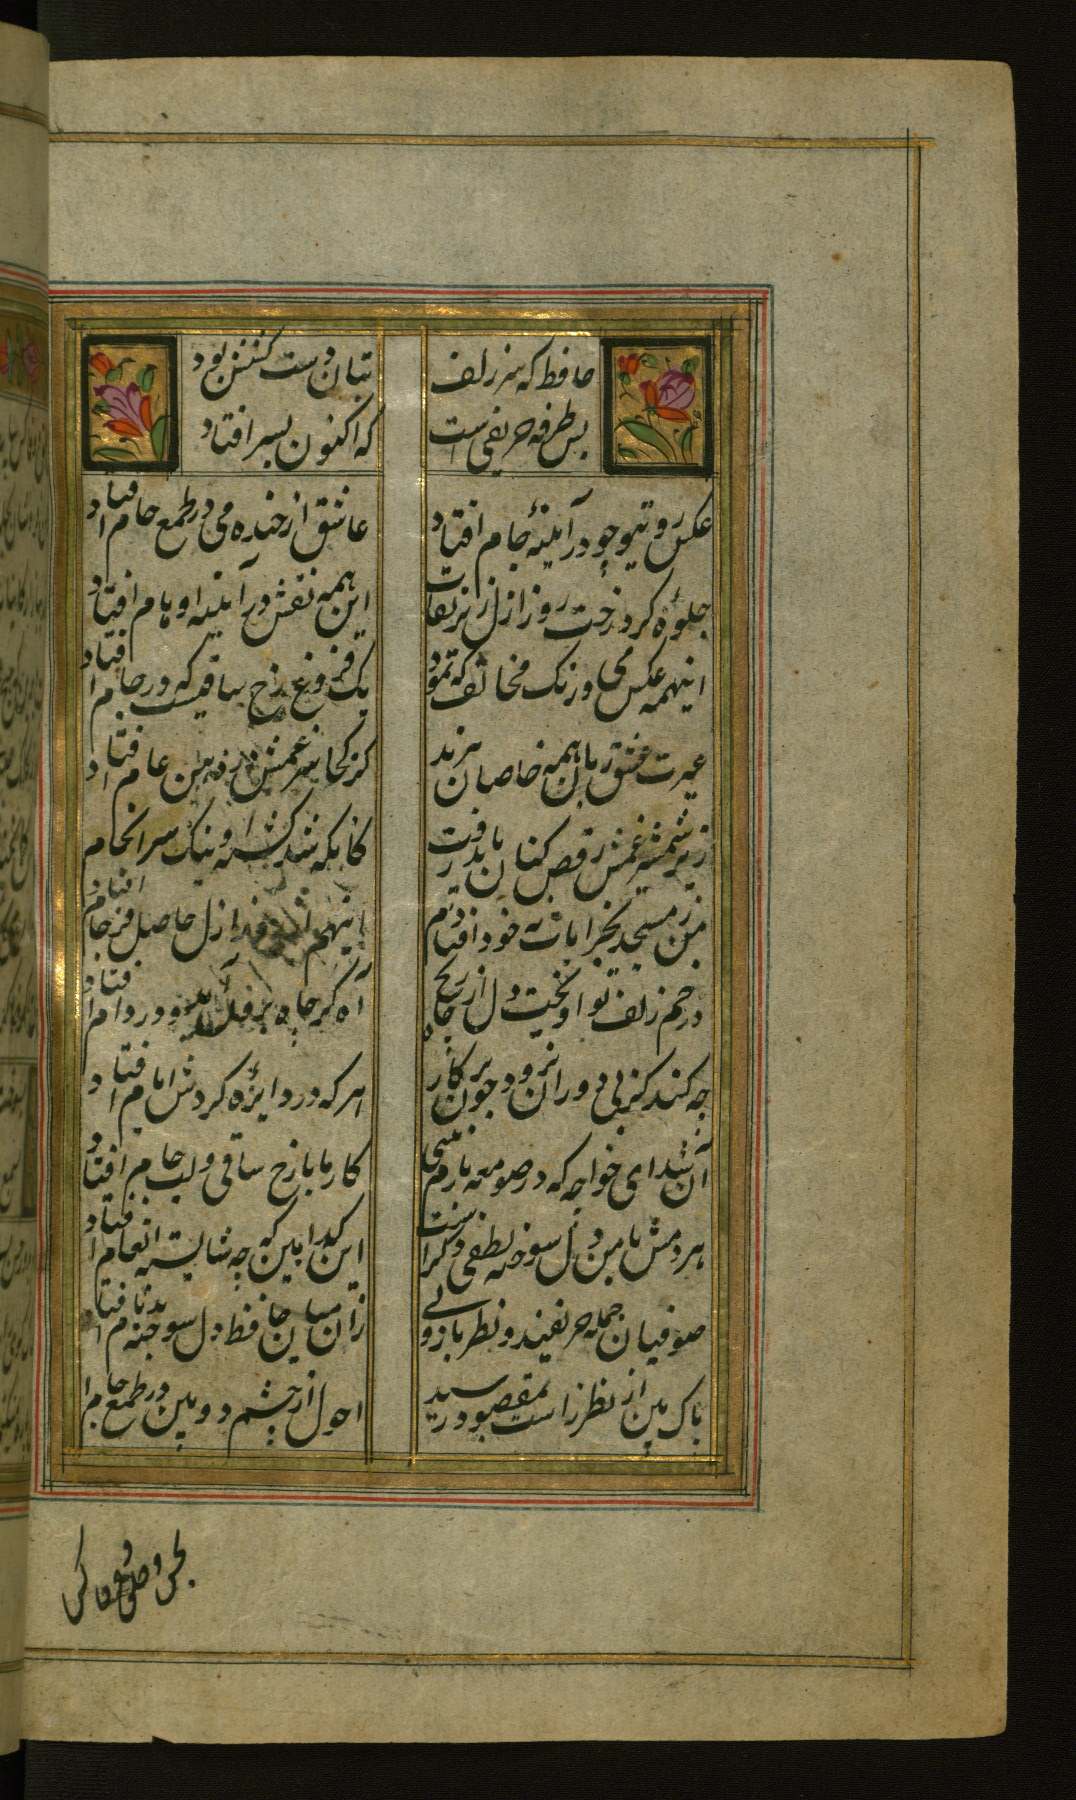 حافظ که سر زلف
بتان دست کشش بود
بس طرفه حریفی است
که اکنون بسر افتاد
عکس روی تو چو در آینهٔ جام افتاد
عاشق از خنده می در طمع خام افتاد
جلوهٔ کرد رخت روز ازل زیر نقاب
این همه نقش در آیینه اوهام افتاد
اینهمه عکس می و رنگ مخالف که نمود
یک فروغ رخ ساقیست که در جام افتاد
غیرت عشق زبان همه خاصان ببرید
کز کجا سر غمش در دهن عام افتاد
زیر شمشیر غمش رقص کنان باید رفت
کانکه شد کشته او نیک سر انجام افتاد
من ز مسجد بخرابات نه خود افتادم
اینهم از ازل حاصل فرجام افتاد
در خم زلف تو آویخت دل از چاه
آه کز چاه و در دام افتاد
چه کند کز پی دوران نرود چون پرکار
هر که در دایرهٔ گردش ایام افتاد
آن شد ای خواجه که در صومعه بازم بینی
کار ما با رخ ساقی و لب جام افتاد
هر دمش با من دل سوخته لطفی دگر است
این گدا بین که چه شایسته انعام افتاد
صوفیان جمله حریفند و نظرباز ولی
زان میان حافظ دل سوخته بدنام افتاد
پاک بین از نظر راست بمقصود رسید
احول از چشم دو بین در طمع خام ا